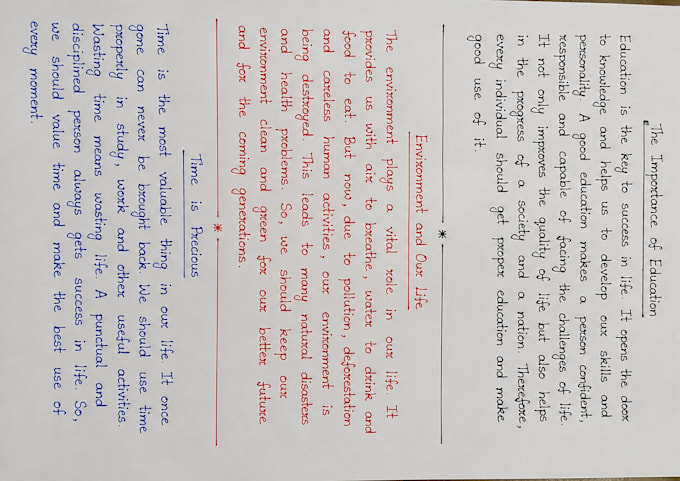 The Importance of Education
Education is the key to success in life. It opens the door
to knowledge and helps us to develop our skills and
personality. A good education makes a person confident,
responsible and capable of facing the challenges of life.
It not only improves the quality of life but also helps
in the progress of a society and a nation. Therefore,
every individual should get proper education and make
good use of it.
Environment and Our Life
The environment plays a vital role in our life. It
provides us with air to breathe, water to drink and
food to eat. But now, due to pollution, deforestation
and careless human activities, our environment is
being destroyed. This leads to many natural disasters
and health problems. So, we should keep our
environment clean and green for our better future
and for the coming generations.
Time is Precious
Time is the most valuable thing in our life. It once
gone can never be brought back. We should use time
properly in study, work and other useful activities.
Wasting time means wasting life. A punctual and
disciplined person always gets success in life. So,
we should value time and make the best use of
every moment.